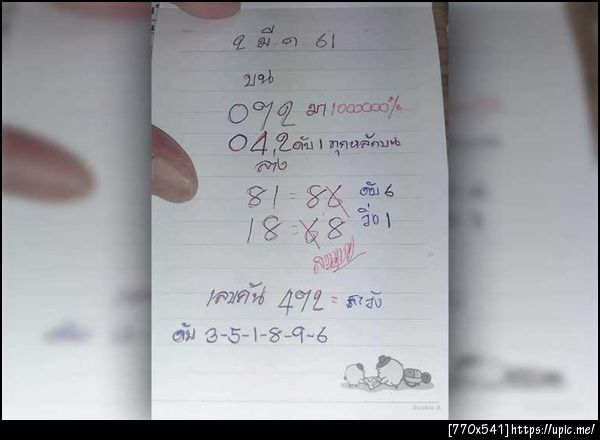 2 มี.ค. 61
บน
072 มา 1000000%
04,2 ดับ 1 ทุกหลักบน
ล่าง
81 = 86 ดับ 6
18 = 68 วิ่ง 1
เลขคัน 472 = ระวัง
ดับ 3-5-1-8-9-6
[770x541]https://upic.me/